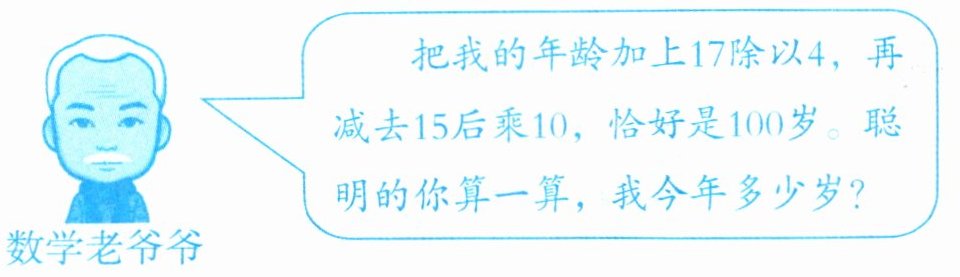 把我的年龄加上17除以4，再
减去15后乘10，恰好是100岁。聪
明的你算一算，我今年多少岁？
数学老爷爷